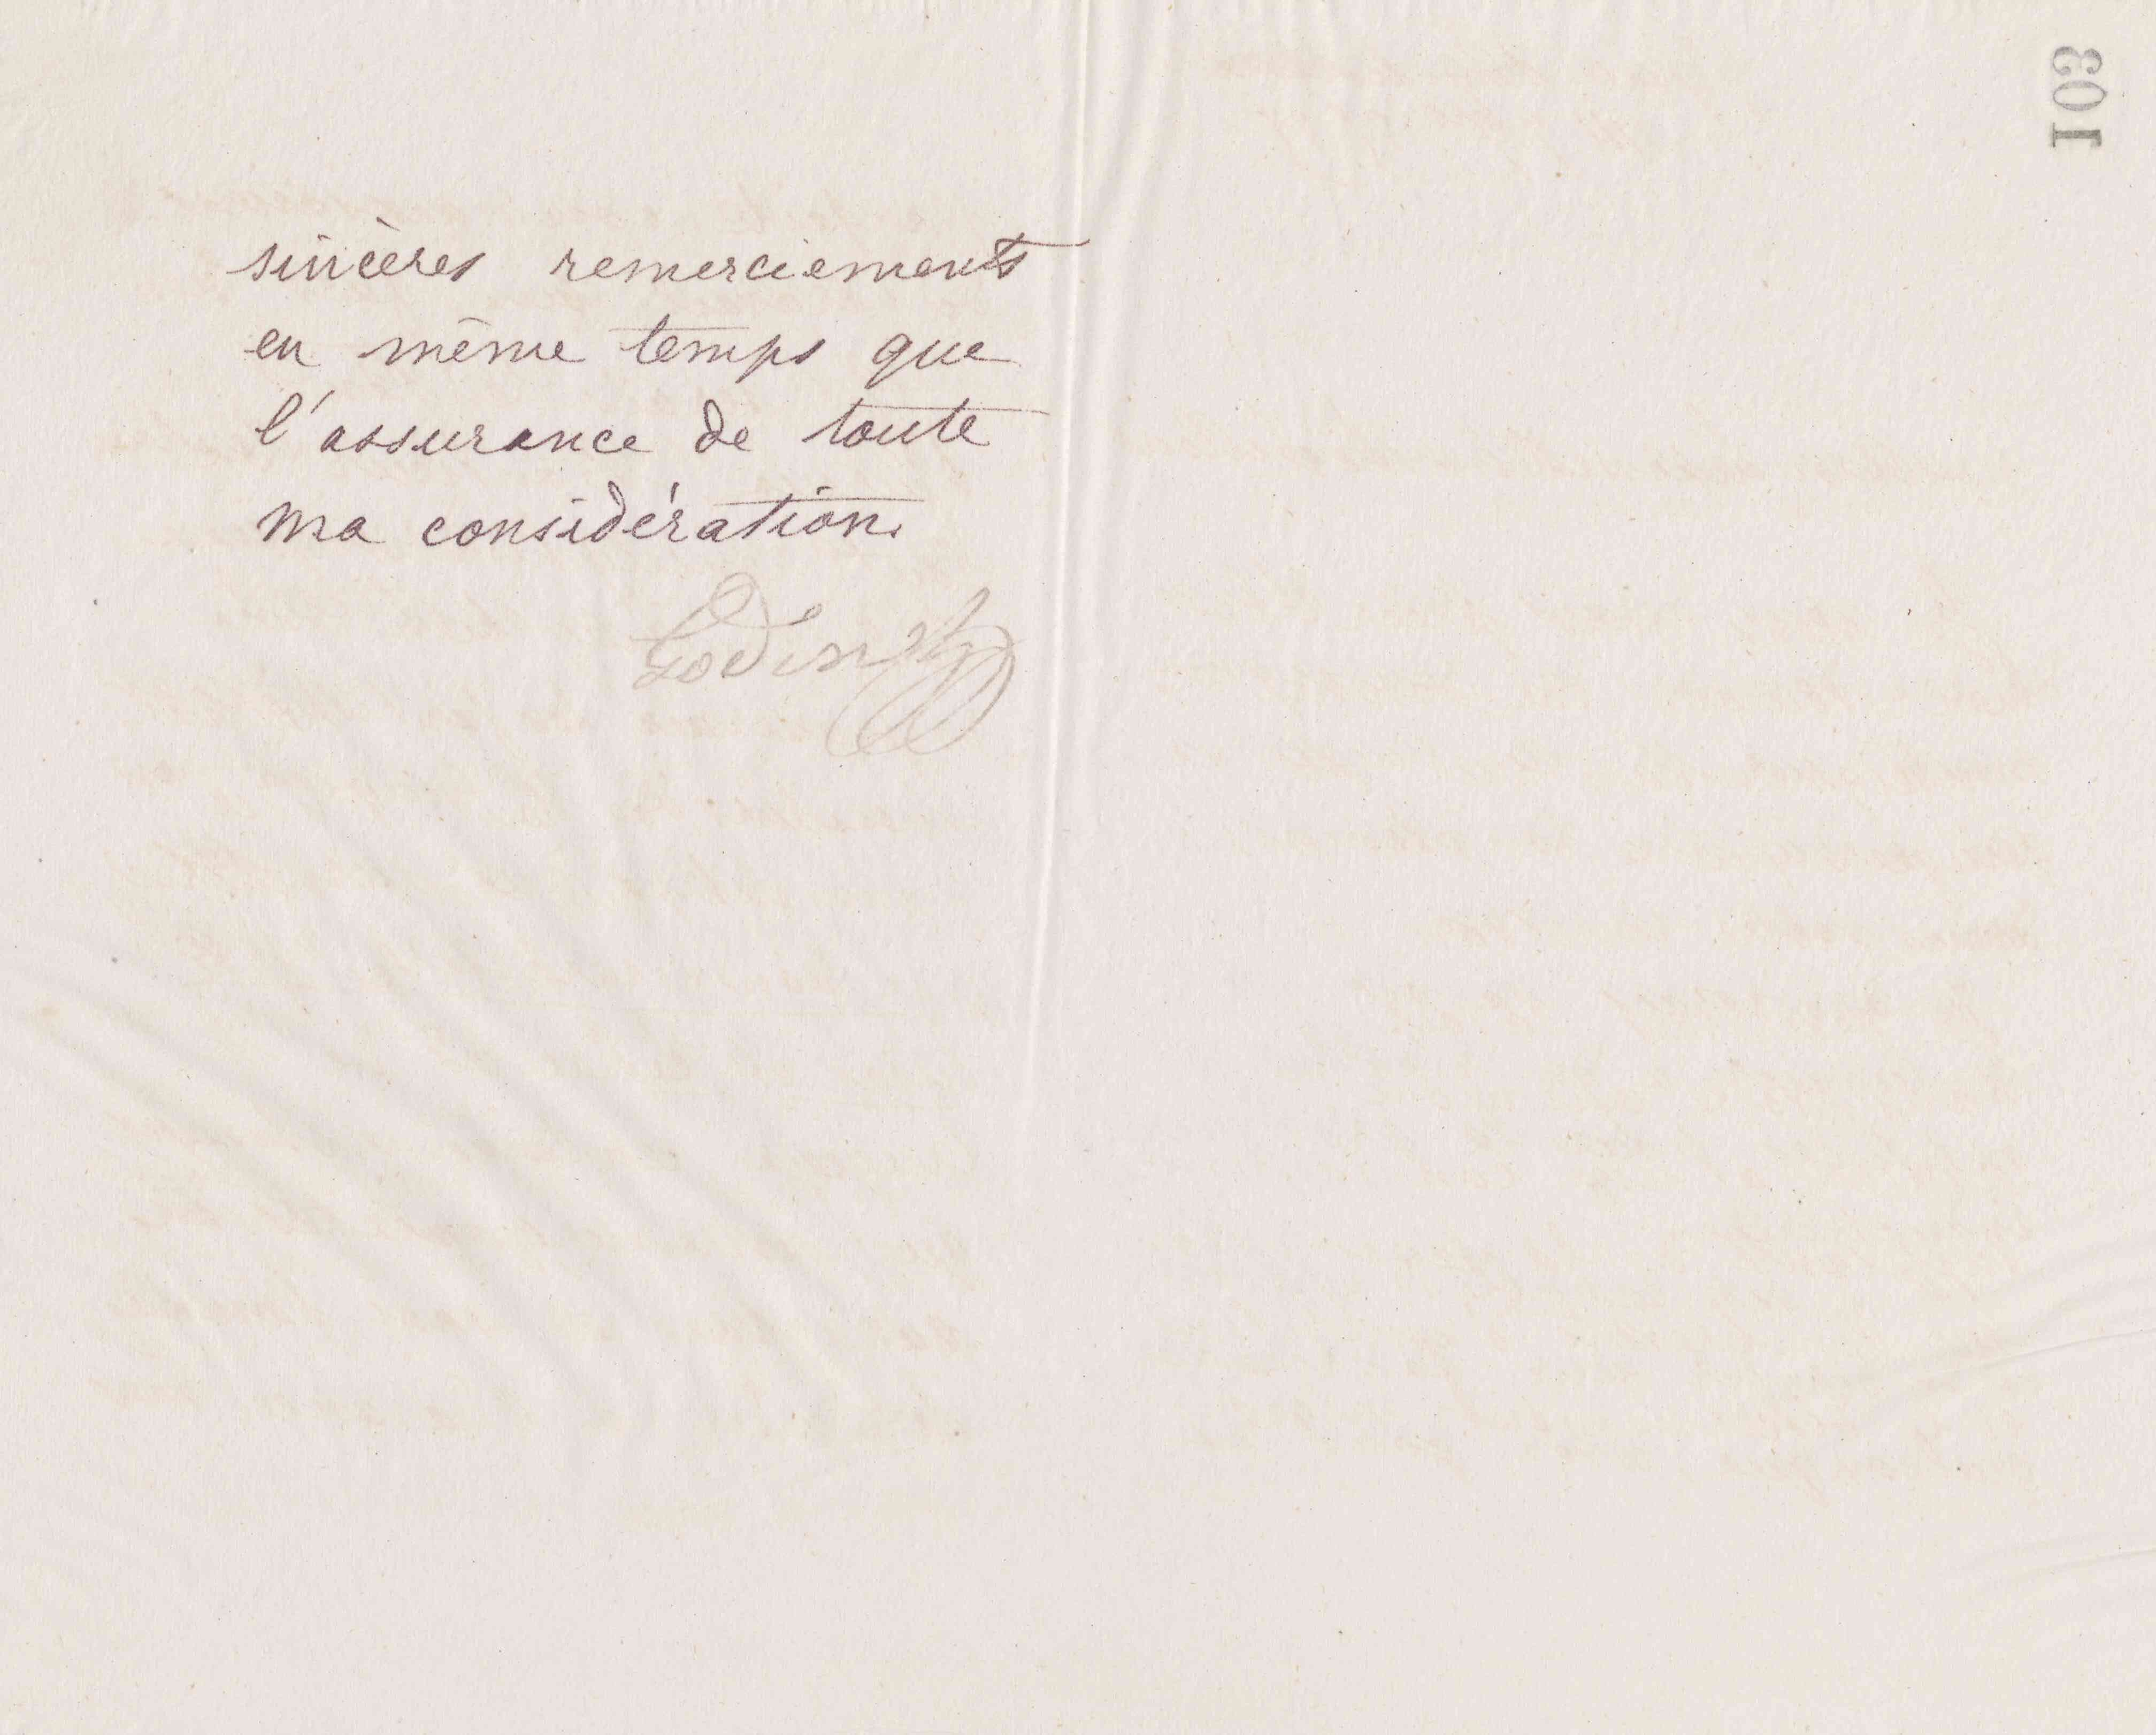 103
sincères remerciements
en même temps que
l'assurance de toute
ma considération.
Godin